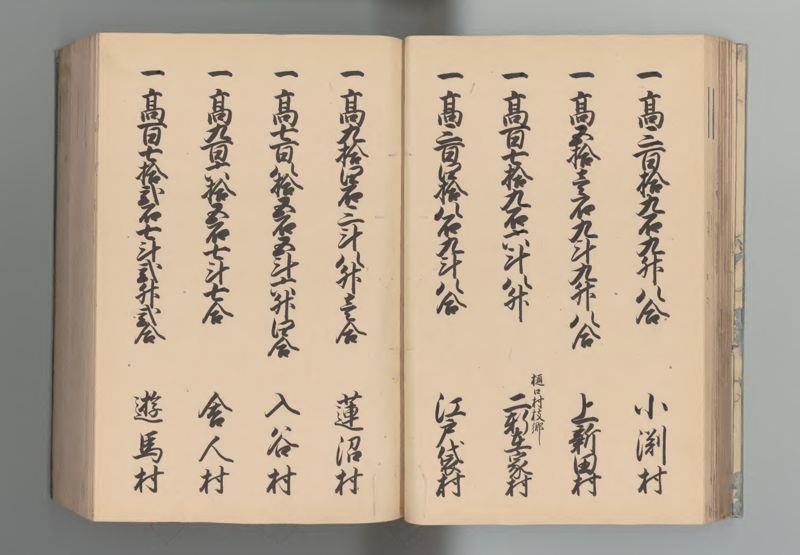 一 高二百拾九石九升八合 小渕村
一 高五拾壱石九斗九升八合 上新田村
一 高百七拾九石六斗八升 樋口村枝郷 二新在家村
一 高二百四拾八石九斗八合 江戸袋村
一 高九拾四石二斗八升壱合 蓮沼村
一 高七百八拾五石五斗六升四合 入谷村
一 高九百六拾五石七斗七合 舎人村
一 高百七拾弐石七斗弐升弐合 遊馬村